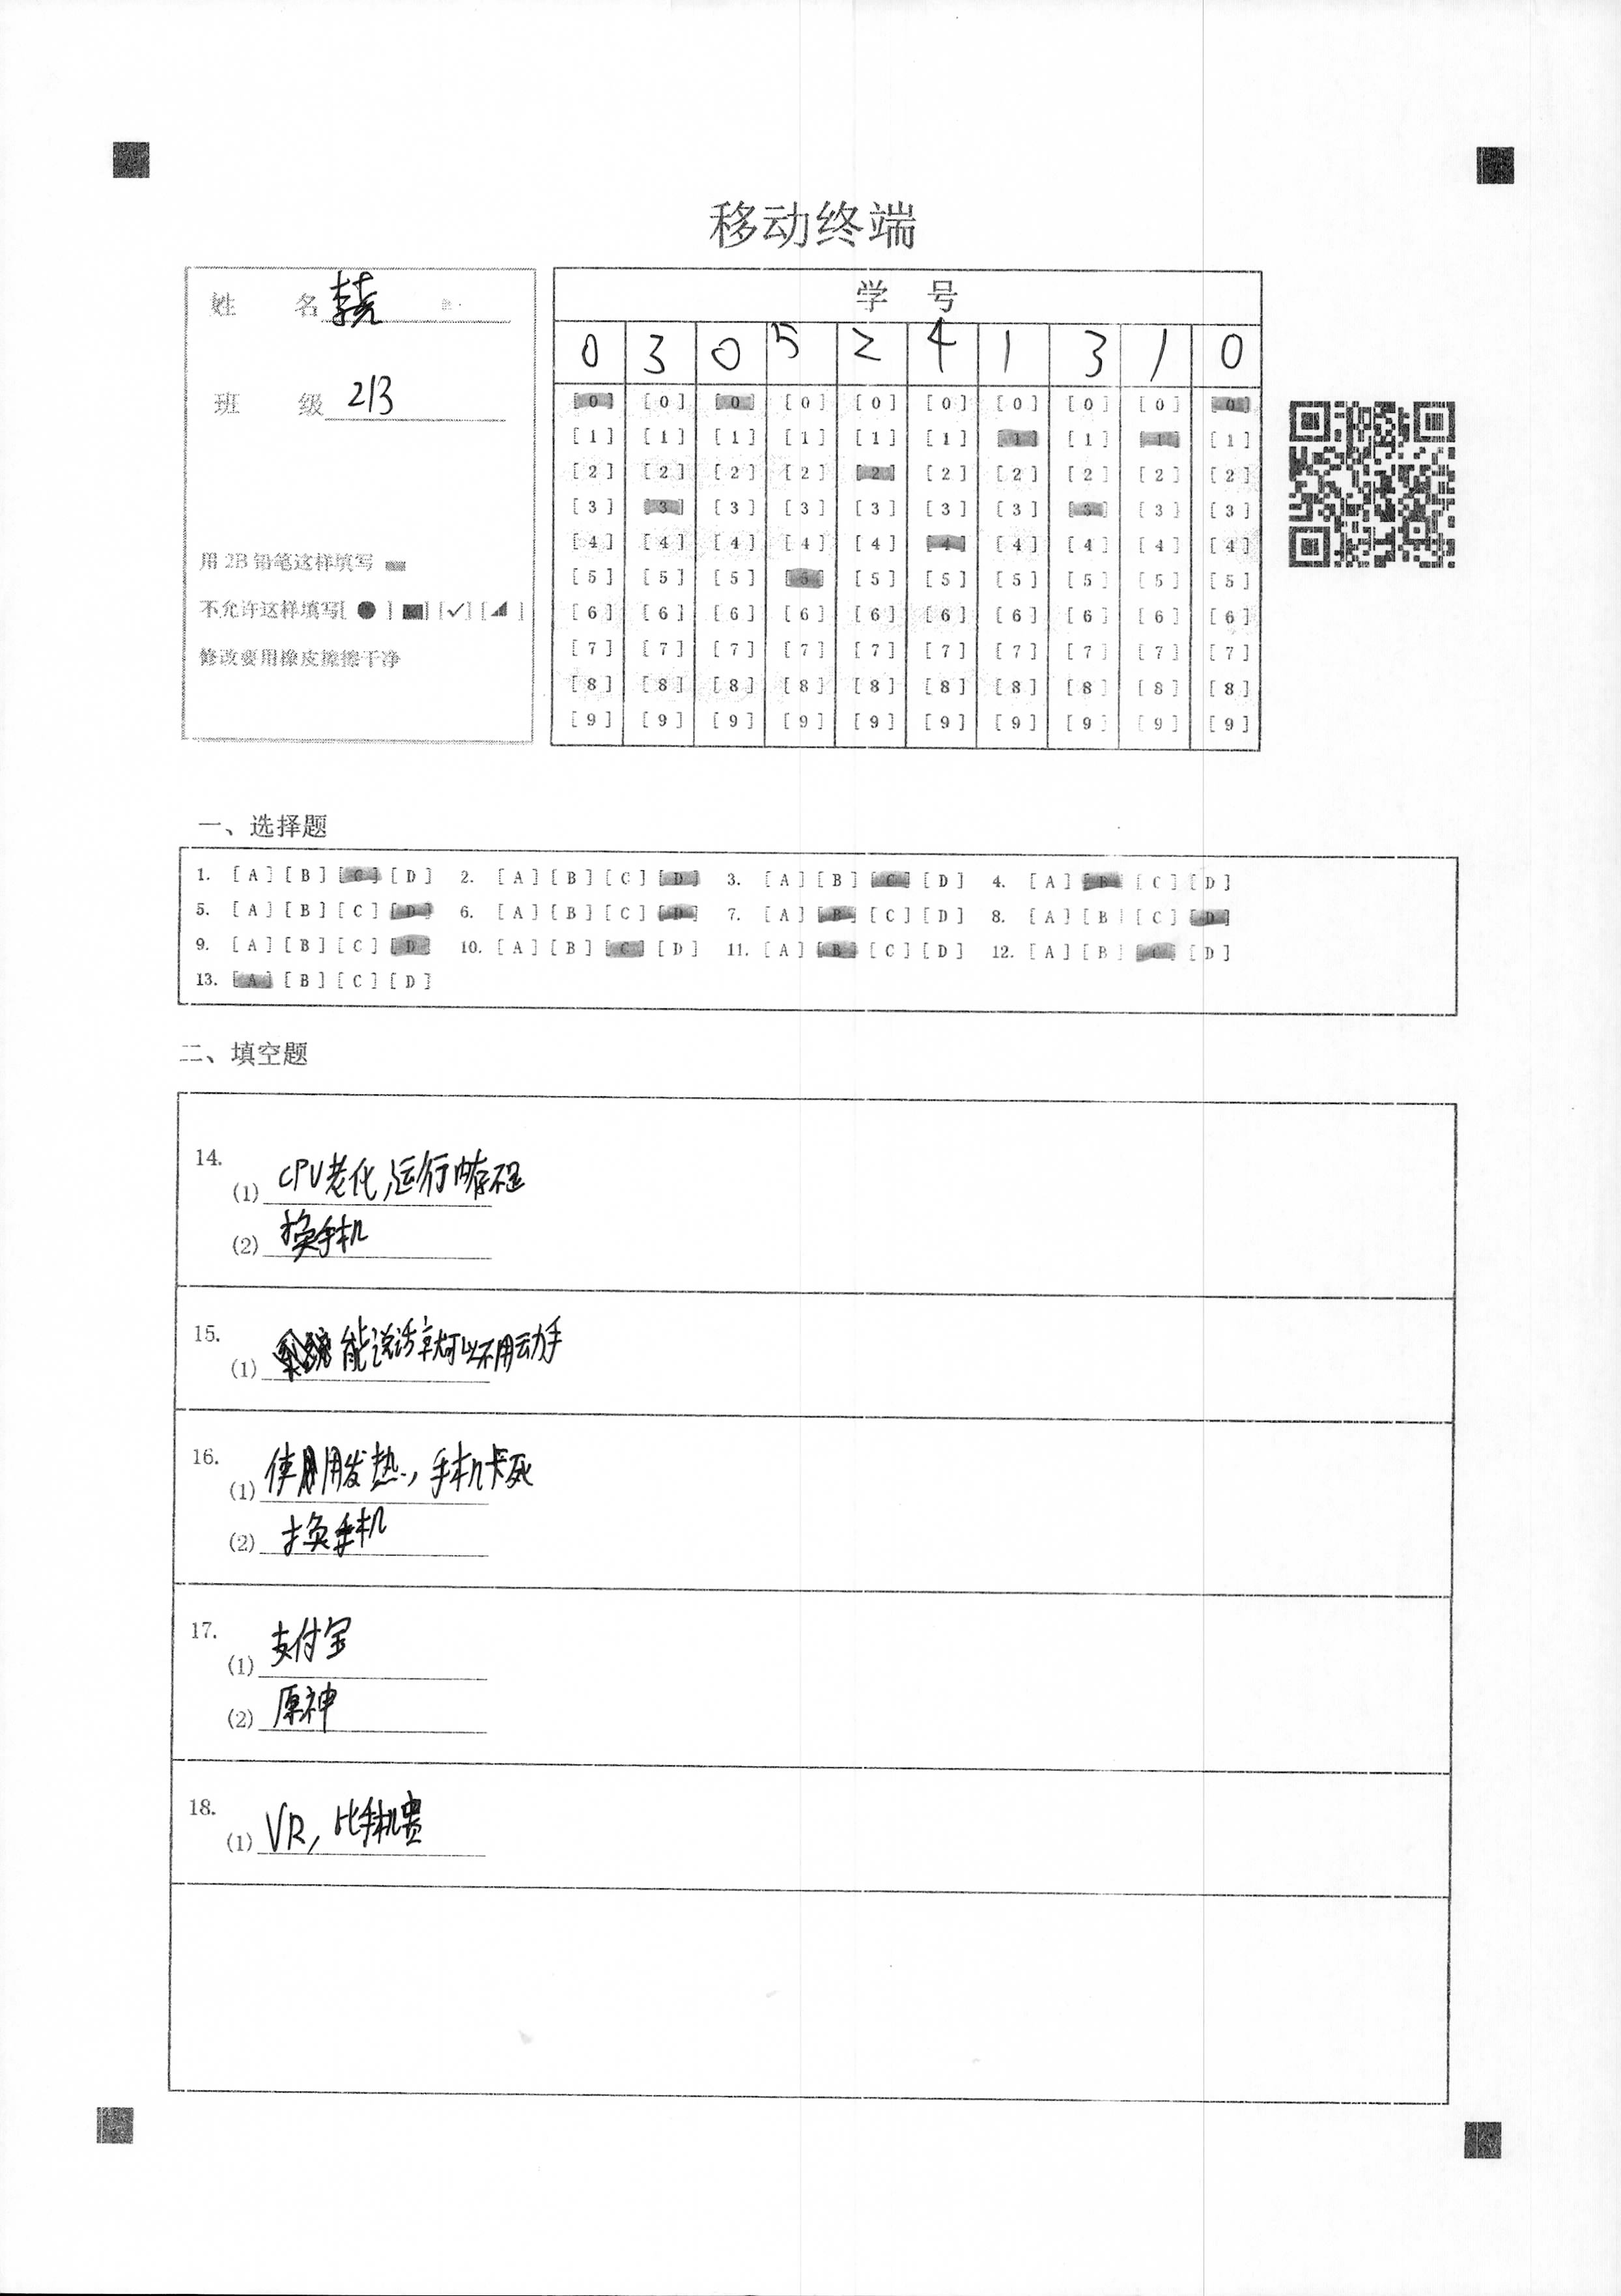 移动终端
姓 名 李尧
班 级 213
用 2B 铅笔这样填写
不允许这样填写[ ● ] [✓] [ ]
修改要用橡皮擦擦干净
学 号
0 3 0 5 2 4 1 3 1 0
[0] [0] [0] [0] [0] [0] [0] [0] [0] [0]
[1] [1] [1] [1] [1] [1] [1] [1] [1] [1]
[2] [2] [2] [2] [2] [2] [2] [2] [2] [2]
[3] [3] [3] [3] [3] [3] [3] [3] [3] [3]
[4] [4] [4] [4] [4] [4] [4] [4] [4] [4]
[5] [5] [5] [5] [5] [5] [5] [5] [5] [5]
[6] [6] [6] [6] [6] [6] [6] [6] [6] [6]
[7] [7] [7] [7] [7] [7] [7] [7] [7] [7]
[8] [8] [8] [8] [8] [8] [8] [8] [8] [8]
[9] [9] [9] [9] [9] [9] [9] [9] [9] [9]
一、选择题
1. [A] [B] [C] [D] 2. [A] [B] [C] [D] 3. [A] [B] [C] [D] 4. [A] [B] [C] [D]
5. [A] [B] [C] [D] 6. [A] [B] [C] [D] 7. [A] [B] [C] [D] 8. [A] [B] [C] [D]
9. [A] [B] [C] [D] 10. [A] [B] [C] [D] 11. [A] [B] [C] [D] 12. [A] [B] [C] [D]
13. [A] [B] [C] [D]
二、填空题
14.
(1) CPU老化,运行内存不足
(2) 换手机
15.
(1) 能说话就可以不用动手
16.
(1) 使用发热,手机卡死
(2) 换手机
17.
(1) 支付宝
(2) 原神
18.
(1) VR,比手机贵